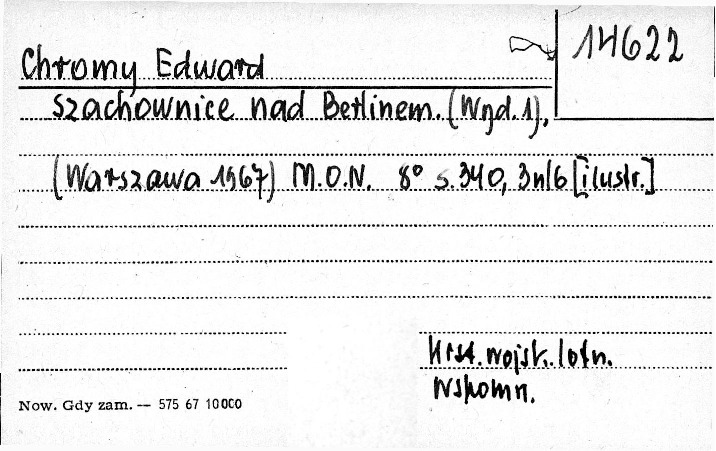 14622
Chromy Edward
Szachownice nad Berlinem. (Wyd. 1).
(Warszawa 1967) M.O.N. 8° s. 340, 3nlb [ilustr.]
Hist. wojsk. lotn.
Wspomn.
Now. Gdy zam. — 575 67 10000